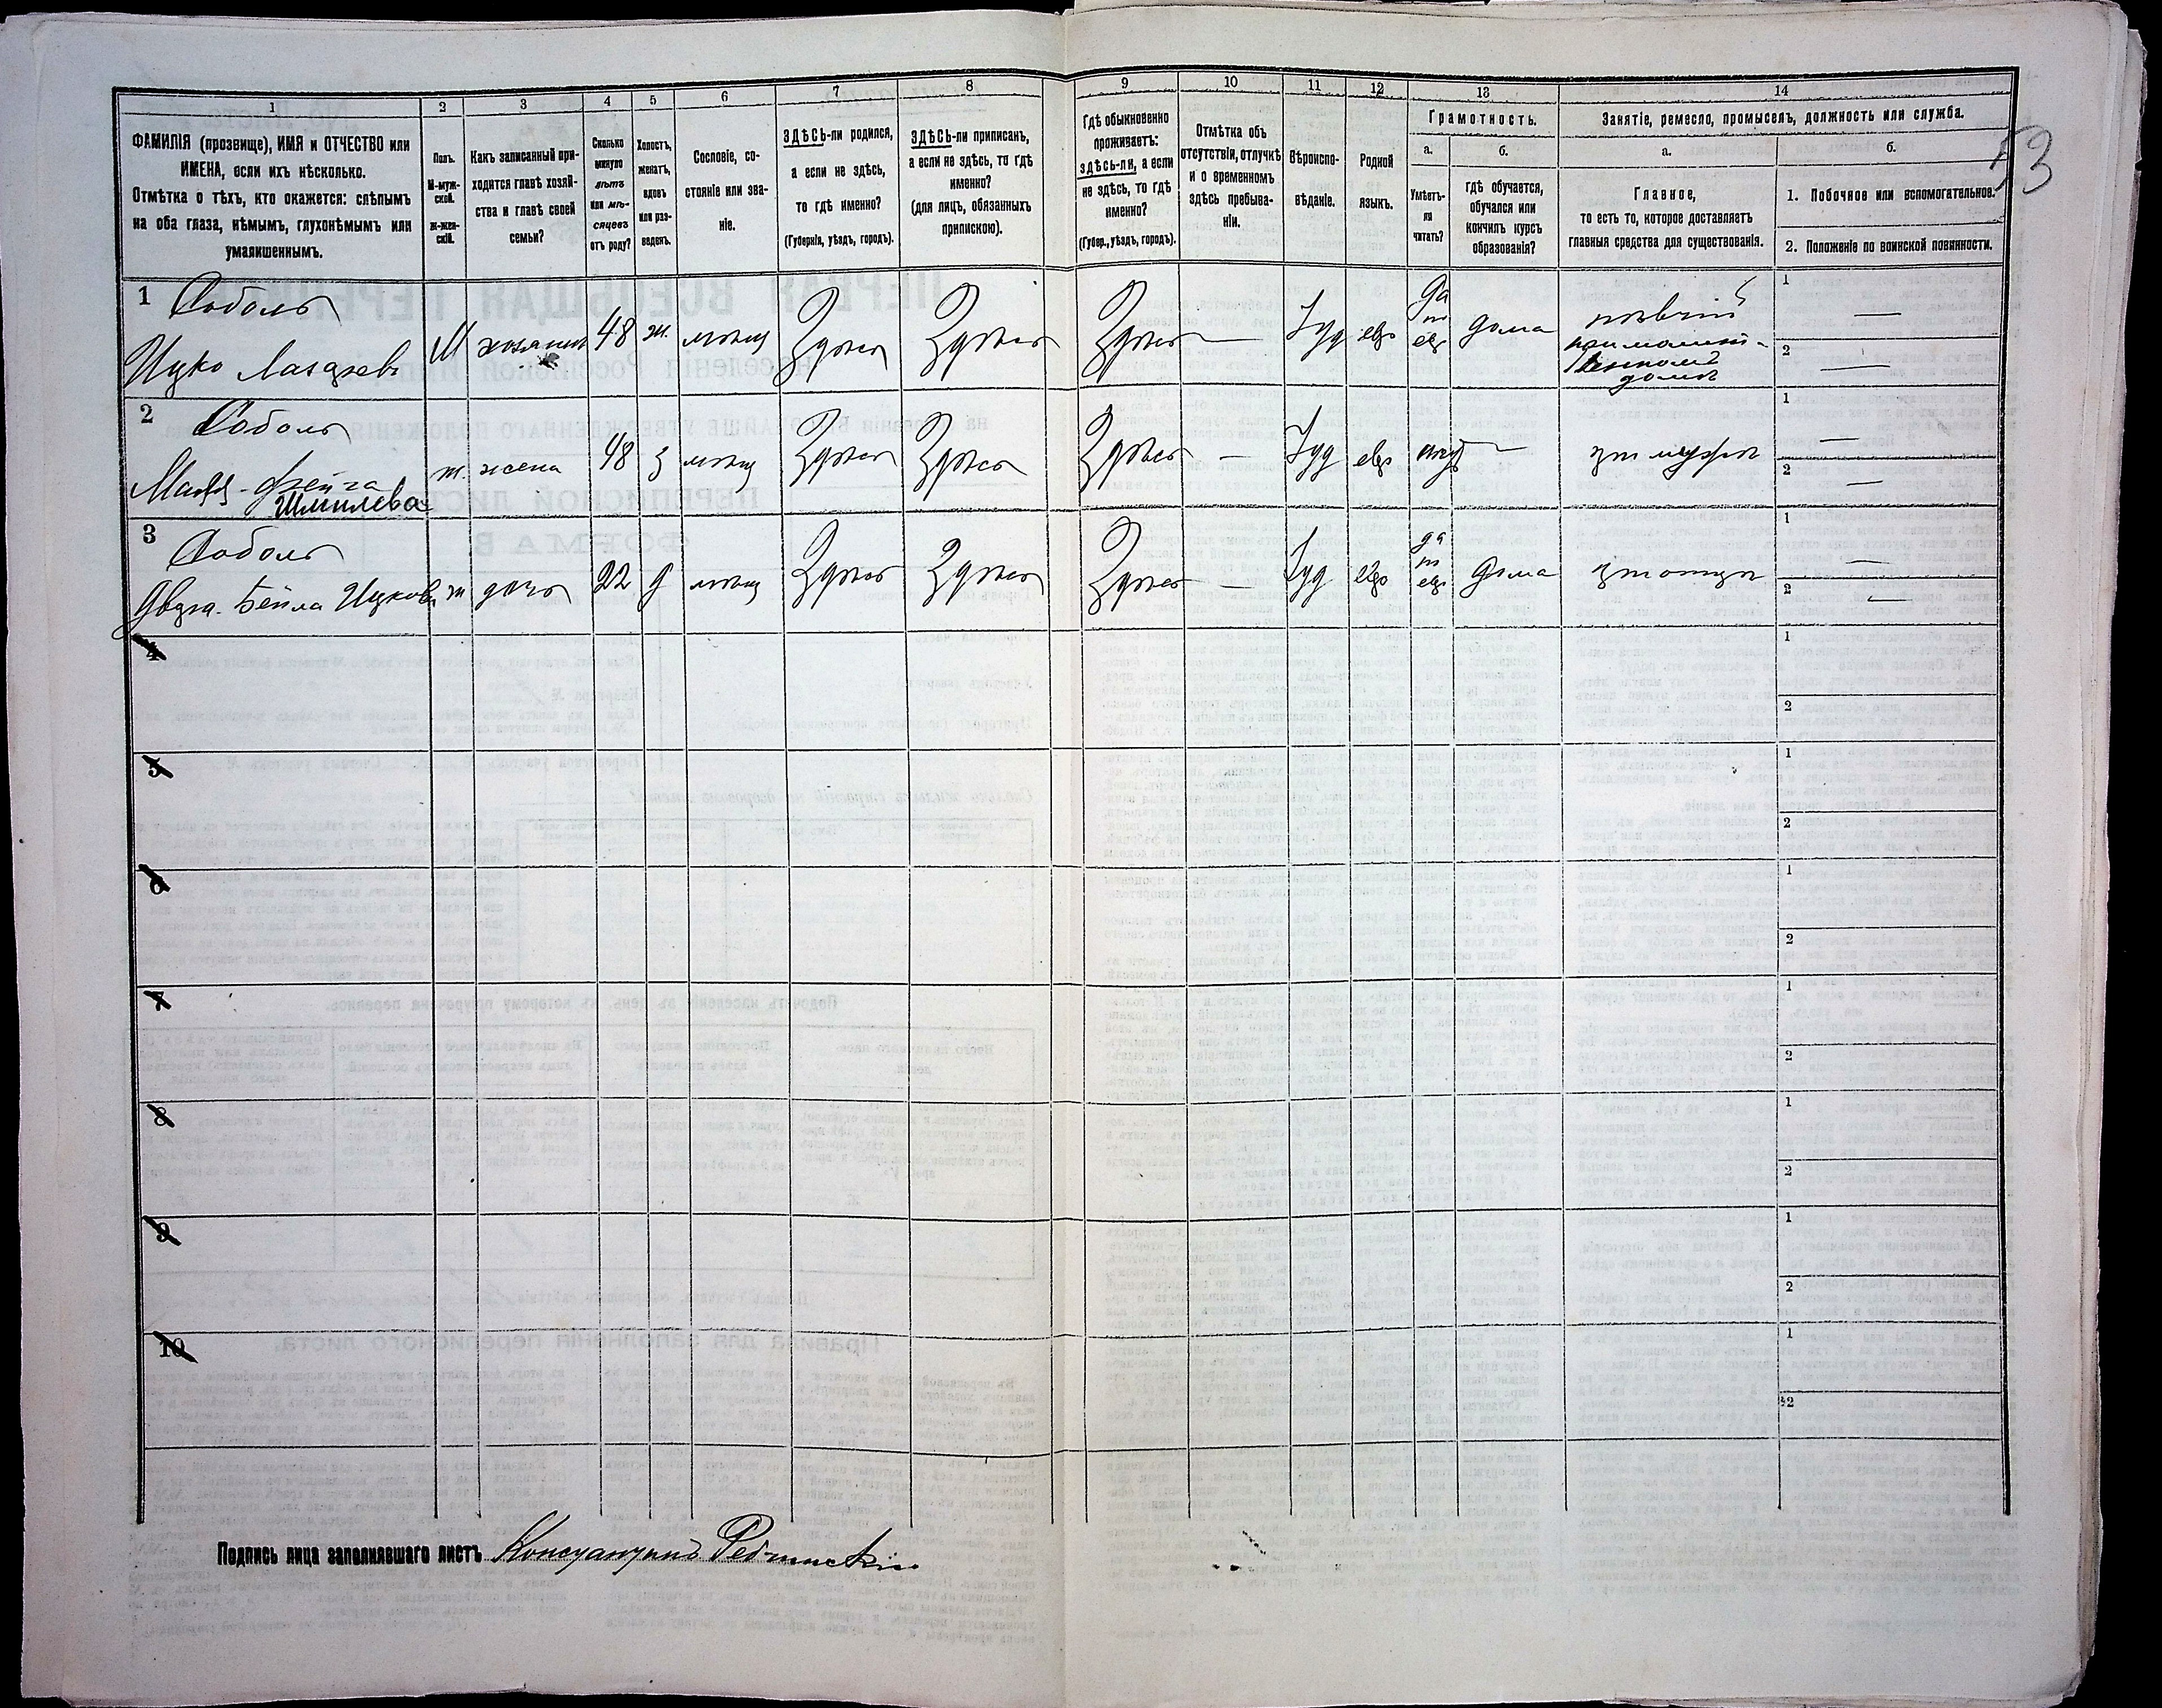 53
1 2 3 4 5 6 7 8 9 10 11 12 13 14
ФАМИЛІЯ (прозвище), ИМЯ и ОТЧЕСТВО или
ИМЕНА, если ихъ нѣсколько.
Отмѣтка о тѣхъ, кто окажется: слѣпымъ
на оба глаза, нѣмымъ, глухонѣмымъ или
умалишеннымъ.
Полъ.
М-муж-
ской.
Ж-жен-
скій.
Какъ записанный при-
ходится главѣ хозяй-
ства и главѣ своей
семьи?
Сколько
минуло
лѣтъ
или мѣ-
сяцевъ
отъ роду?
Холостъ,
женатъ,
вдовъ
или раз-
веденъ.
Сословіе, со-
стояніе или зва-
ніе.
ЗДѢСЬ-ли родился,
а если не здѣсь,
то гдѣ именно?
(Губернія, уѣздъ, городъ).
ЗДѢСЬ-ли приписанъ,
а если не здѣсь, то гдѣ
именно?
(для лицъ, обязанныхъ
припискою).
Гдѣ обыкновенно
проживаетъ:
здѣсь-ли, а если
не здѣсь, то гдѣ
именно?
(Губер., уѣздъ, городъ).
Отмѣтка объ
отсутствіи, отлучкѣ
и о временномъ
здѣсь пребыва-
ніи.
Вѣроиспо-
вѣданіе.
Родной
языкъ.
Грамотность.
а.
Умѣетъ-
ли
читать?
б.
гдѣ обучается,
обучался или
кончилъ курсъ
образованія?
Занятіе, ремесло, промыселъ, должность или служба.
а.
Главное,
то есть то, которое доставляетъ
главныя средства для существованія.
б.
1. Побочное или вспомогательное.
2. Положеніе по воинской повинности.
1 Соболь
Ицко Лазарев
М хозяинъ 48 ж. мѣщ Здѣсь Здѣсь Здѣсь — Іуд евр
да
по
евр
дома
пѣвчій
при молит-
венномъ
домѣ
1 —
2 —
2 Соболь
Фейга
Шмилева
ж. жена 48 з мѣщ Здѣсь Здѣсь Здѣсь — Іуд евр нѣт — при мужѣ
1 —
2 —
3 Соболь
Двера-Бейла Ицкова
ж дочь 22 д мѣщ Здѣсь Здѣсь Здѣсь — Іуд евр
да
по
евр
дома при отцѣ
1 —
2 —
4 1
2
5 1
2
6 1
2
7 1
2
8 1
2
9 1
2
10 1
2
Подпись лица заполнявшаго листъ Константинъ